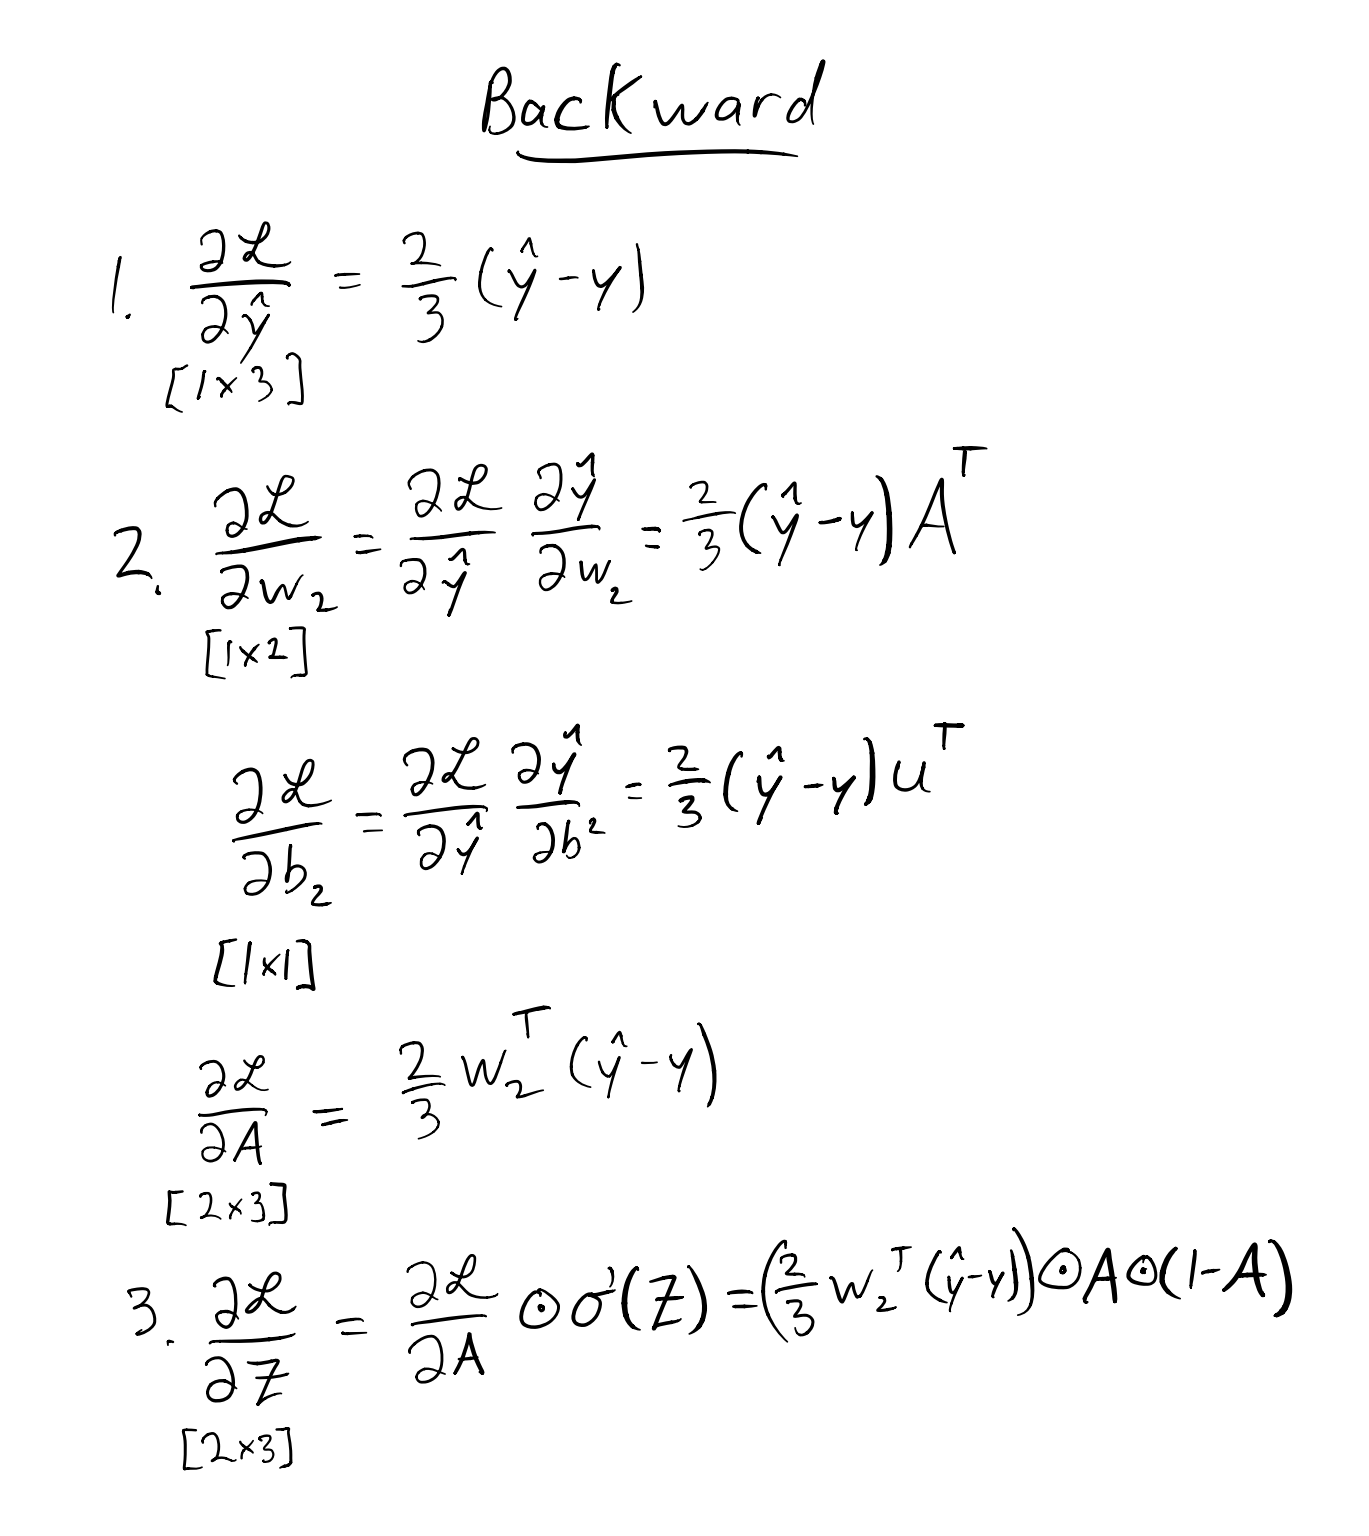 Backward
1. ∂ℒ/∂ŷ = 2/3 (ŷ - y)
[1×3]
2. ∂ℒ/∂w₂ = ∂ℒ/∂ŷ ∂ŷ/∂w₂ = 2/3 (ŷ - y) Aᵀ
[1×2]
∂ℒ/∂b₂ = ∂ℒ/∂ŷ ∂ŷ/∂b² = 2/3 (ŷ - y) uᵀ
[1×1]
∂ℒ/∂A = 2/3 w₂ᵀ (ŷ - y)
[2×3]
3. ∂ℒ/∂Z = ∂ℒ/∂A ⊙ σ'(Z) = (2/3 w₂ᵀ (ŷ - y)) ⊙ A ⊙ (1 - A)
[2×3]